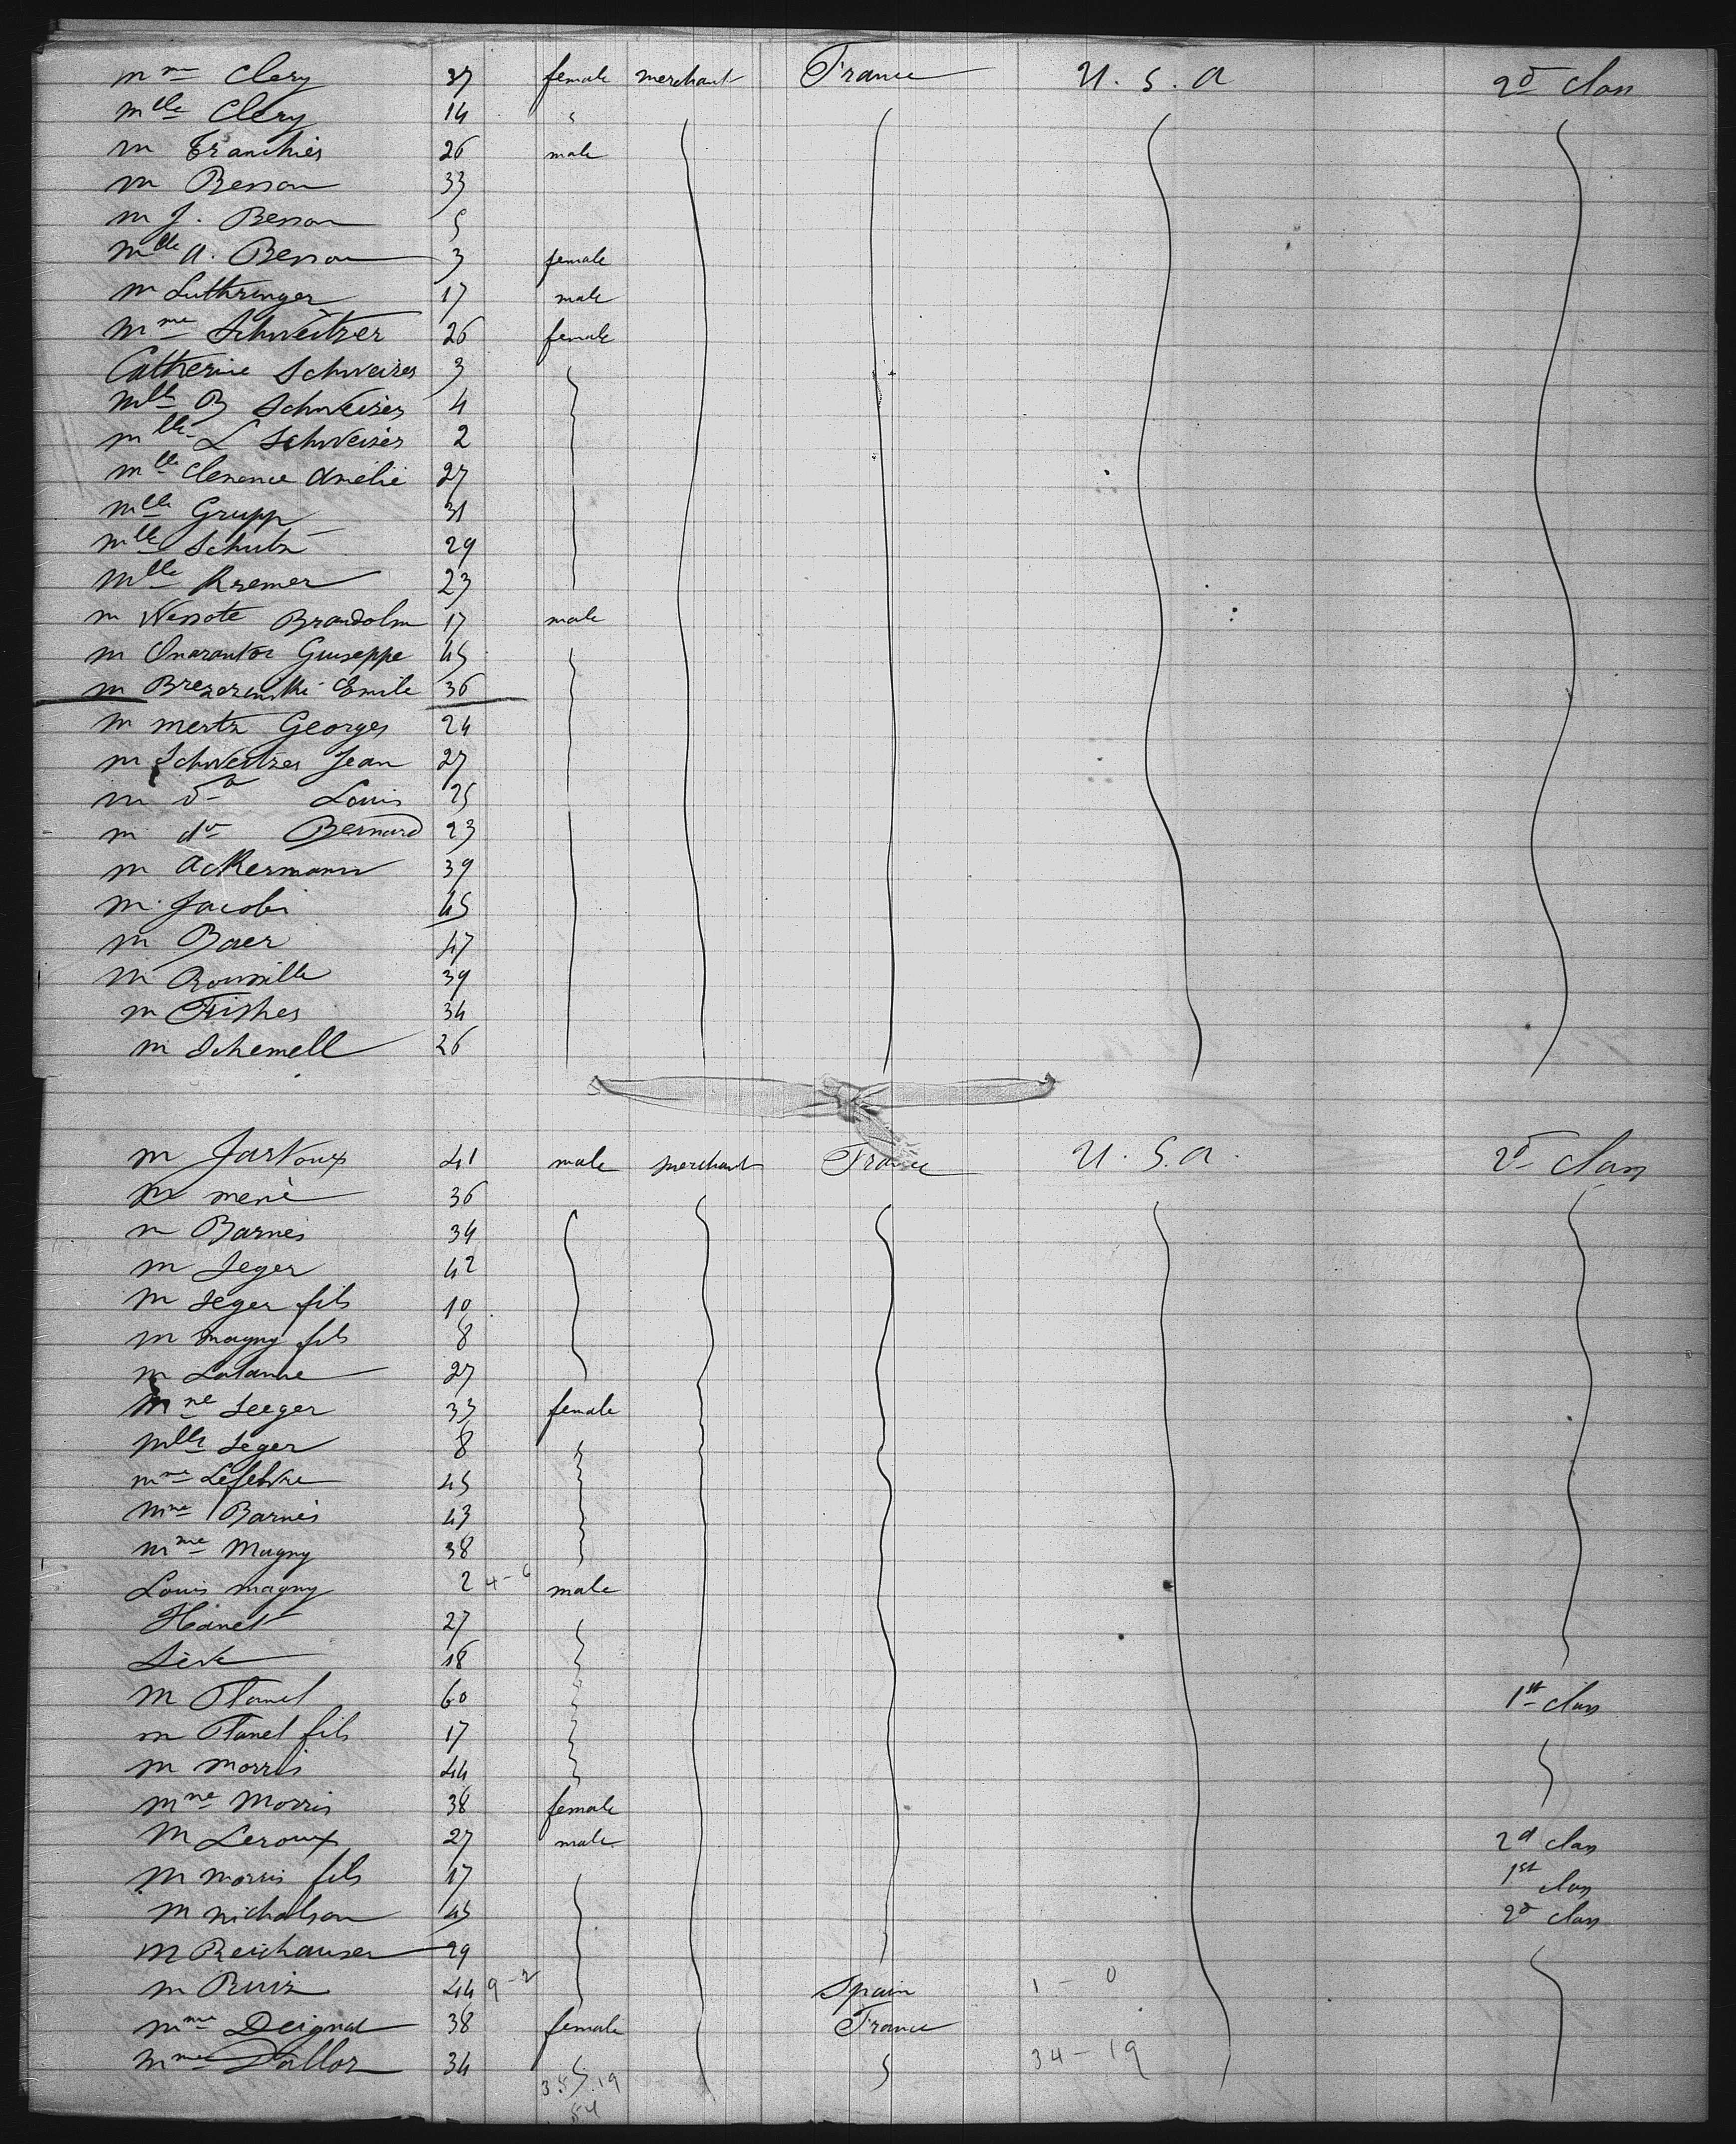 Mme Clery 37 female merchant France U. S. A 2d Class
Mlle Clery 14
M Tranchier 26 male
M Besson 33
M J. Besson 5
Mlle A. Besson 3 female
M Luthringer 17 male
Mme Schweitzer 26 female
Catherine Schweizer 3
Mlle B Schweizer 4
Mlle L Schweizer 2
Mlle Clemence Amelie 27
Mlle Grupp 31
Mlle Schutz 29
Mlle Kremer 23
M Brandolm 17 male
M Giuseppe 45
M Emile 36
M Mertz Georges 24
M Schweitzer Jean 27
M do Louis 25
M do Bernard 23
M Ackermann 39
M. Jacobi 45
M Baer 47
M 39
M Fisher 34
M Schemell 26
M 41 male merchant France U. S. A. 2d Class
M 36
M Barnes 34
M Seger 42
M Seger fils 10
M Magny fils 8
M 27
Mme Seeger 33 female
Mlle Seger 8
Mme Lefebvre 45
Mme Barnès 43
Mme Magny 38
Louis Magny 2 4-6 male
Hanet 27
18
M Planel 60 1st class
M Planel fils 17
M Morris 44
Mme Morris 38 female
M Leroux 27 male 2d class
M Morris fils 17 1st class
M Nicholson 45 2d class
M Reichauser 29
M Ruiz 44 9-2 Spain 1-0
Mme Deignat 38 female France
Mme 34 34-19
19
54